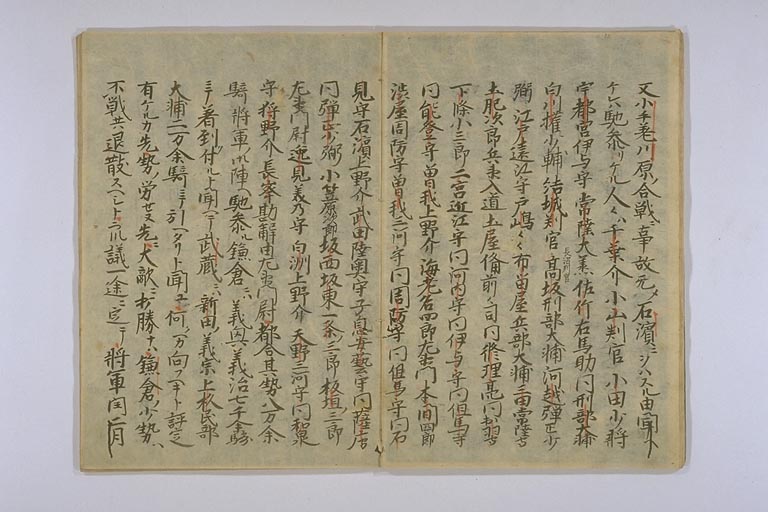 又小手差原ノ合戦ニ事故元ク石濱ニヲハスル由聞ヘ
ケレハ馳参リケル人々ハ千葉介小山判官小田少将
宇都宮伊与守常陸大掾佐竹右馬助同刑部大輔
白川権少輔結城判官長沼判官高坂刑部大輔河越弾正少
弼江戸遠江守戸嶋布留屋兵部大輔三田常陸守
土肥次郎兵衛入道土屋備前々司同修理亮同出羽守
下條小三郎二宮近江守同河内守同伊与守同但馬守
同能登守曽我上野介海老名四郎左衛門本間四郎
渋屋周防守曽我三河守同周防守同但馬守同石
見守石濱上野介武田陸奥守子息安藝守同薩摩守
同弾正少弼小笠原坂西坂東一条三郎板垣三郎
左衛門尉逸見美乃守白洲上野介天野三河守同和泉
守狩野介長峯勘解由左衛門尉都合其勢八万余
騎将軍ノ御陣ヘ馳参ル鎌倉ニハ義興義治七千余騎
ニテ着到ヲ付ルト聞ヘテ武蔵ニハ新田義宗上杉民部
大輔二万余騎ニテ引ヘタリト聞ユ何ノ方向フヘキト評定
有ケルカ先勢ノ労セヌ先ニ大敵ニ打勝ナハ鎌倉ノ少勢ハ
不戦共退散スヘシトテ議一途ニ定テ将軍閏二月